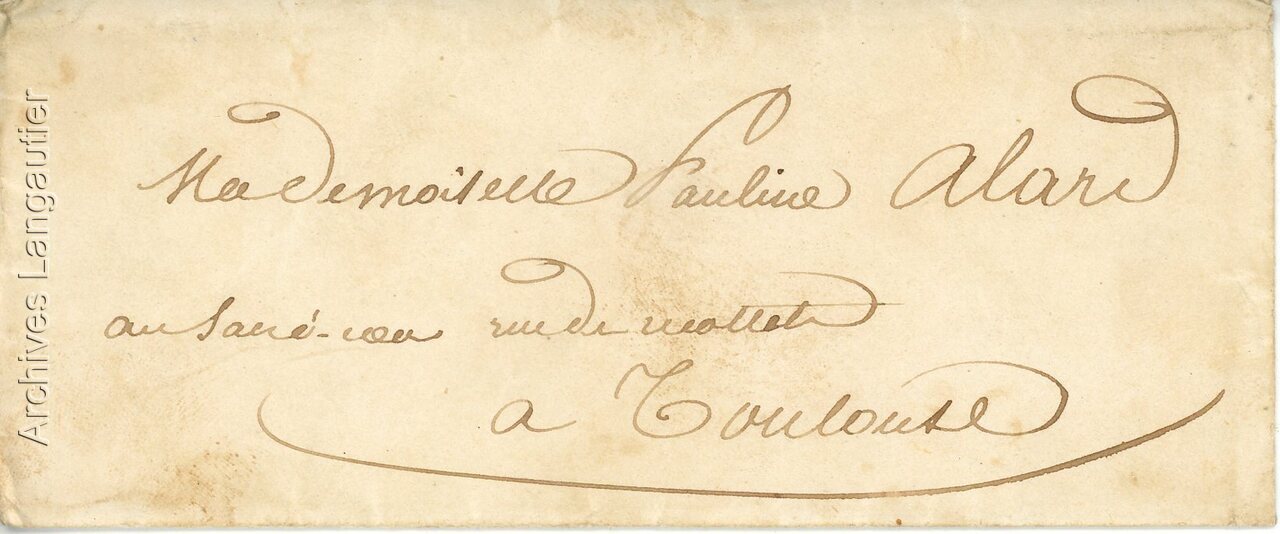 Mademoiselle Pauline Alard
au Sacré-cœur rue de mottets
a Toulouse
Archives Langautier